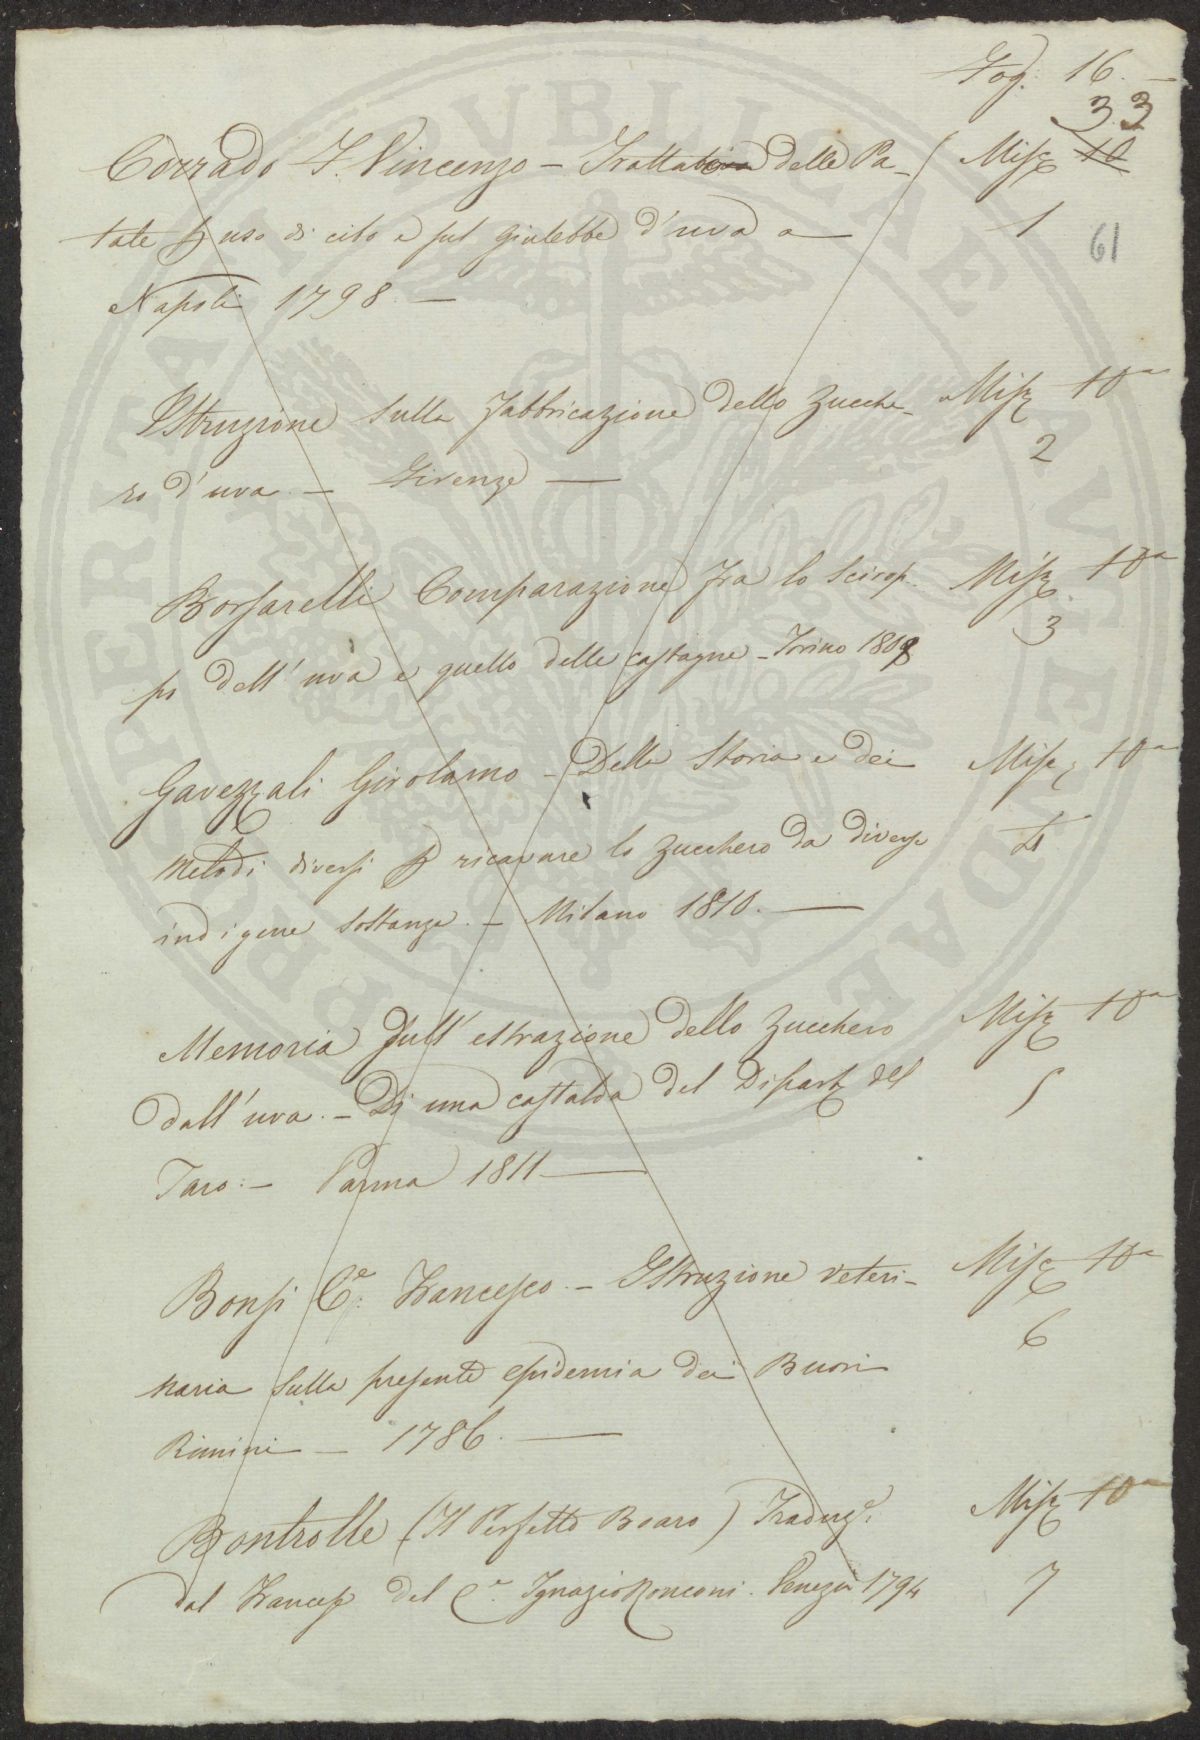 Fog. 16. —
33
Corrado F. Vincenzo — Trattato delle Pa- Misc 10
tate p uso di cibo e sul Giulebbe d'uva a — 1
61
Napoli 1798. —
Istruzione sulla fabbricazione dello Zucche- Misc 10a
2
ro d'uva. — Firenze —
Borsarelli Comparazione fra lo Scirop- Misc. 10a
3
po dell'uva e quello delle castagne — Torino 1808
Gavezzali Girolamo — Della Storia e dei Misc 10a
metodi diversi p ricavare lo Zucchero da diverse 4
indigene sostanze. — Milano 1810. —
Memoria sull'estrazione dello Zucchero Misc 10a
dall'uva. — Di una castalda del Dipart del 5
Taro: — Parma 1811 —
Bonsi Ce. Francesco. — Istruzione veteri- Misc 10a
6
naria sulla presente epidemia dei Buovi
Rimini — 1786. —
Bontrolle (Il Perfetto Boaro) Traduze. Misc 10a
dal Francese del Ignazio Ronconi. Venezia 1794 7
PVBLICAE VTENDAE